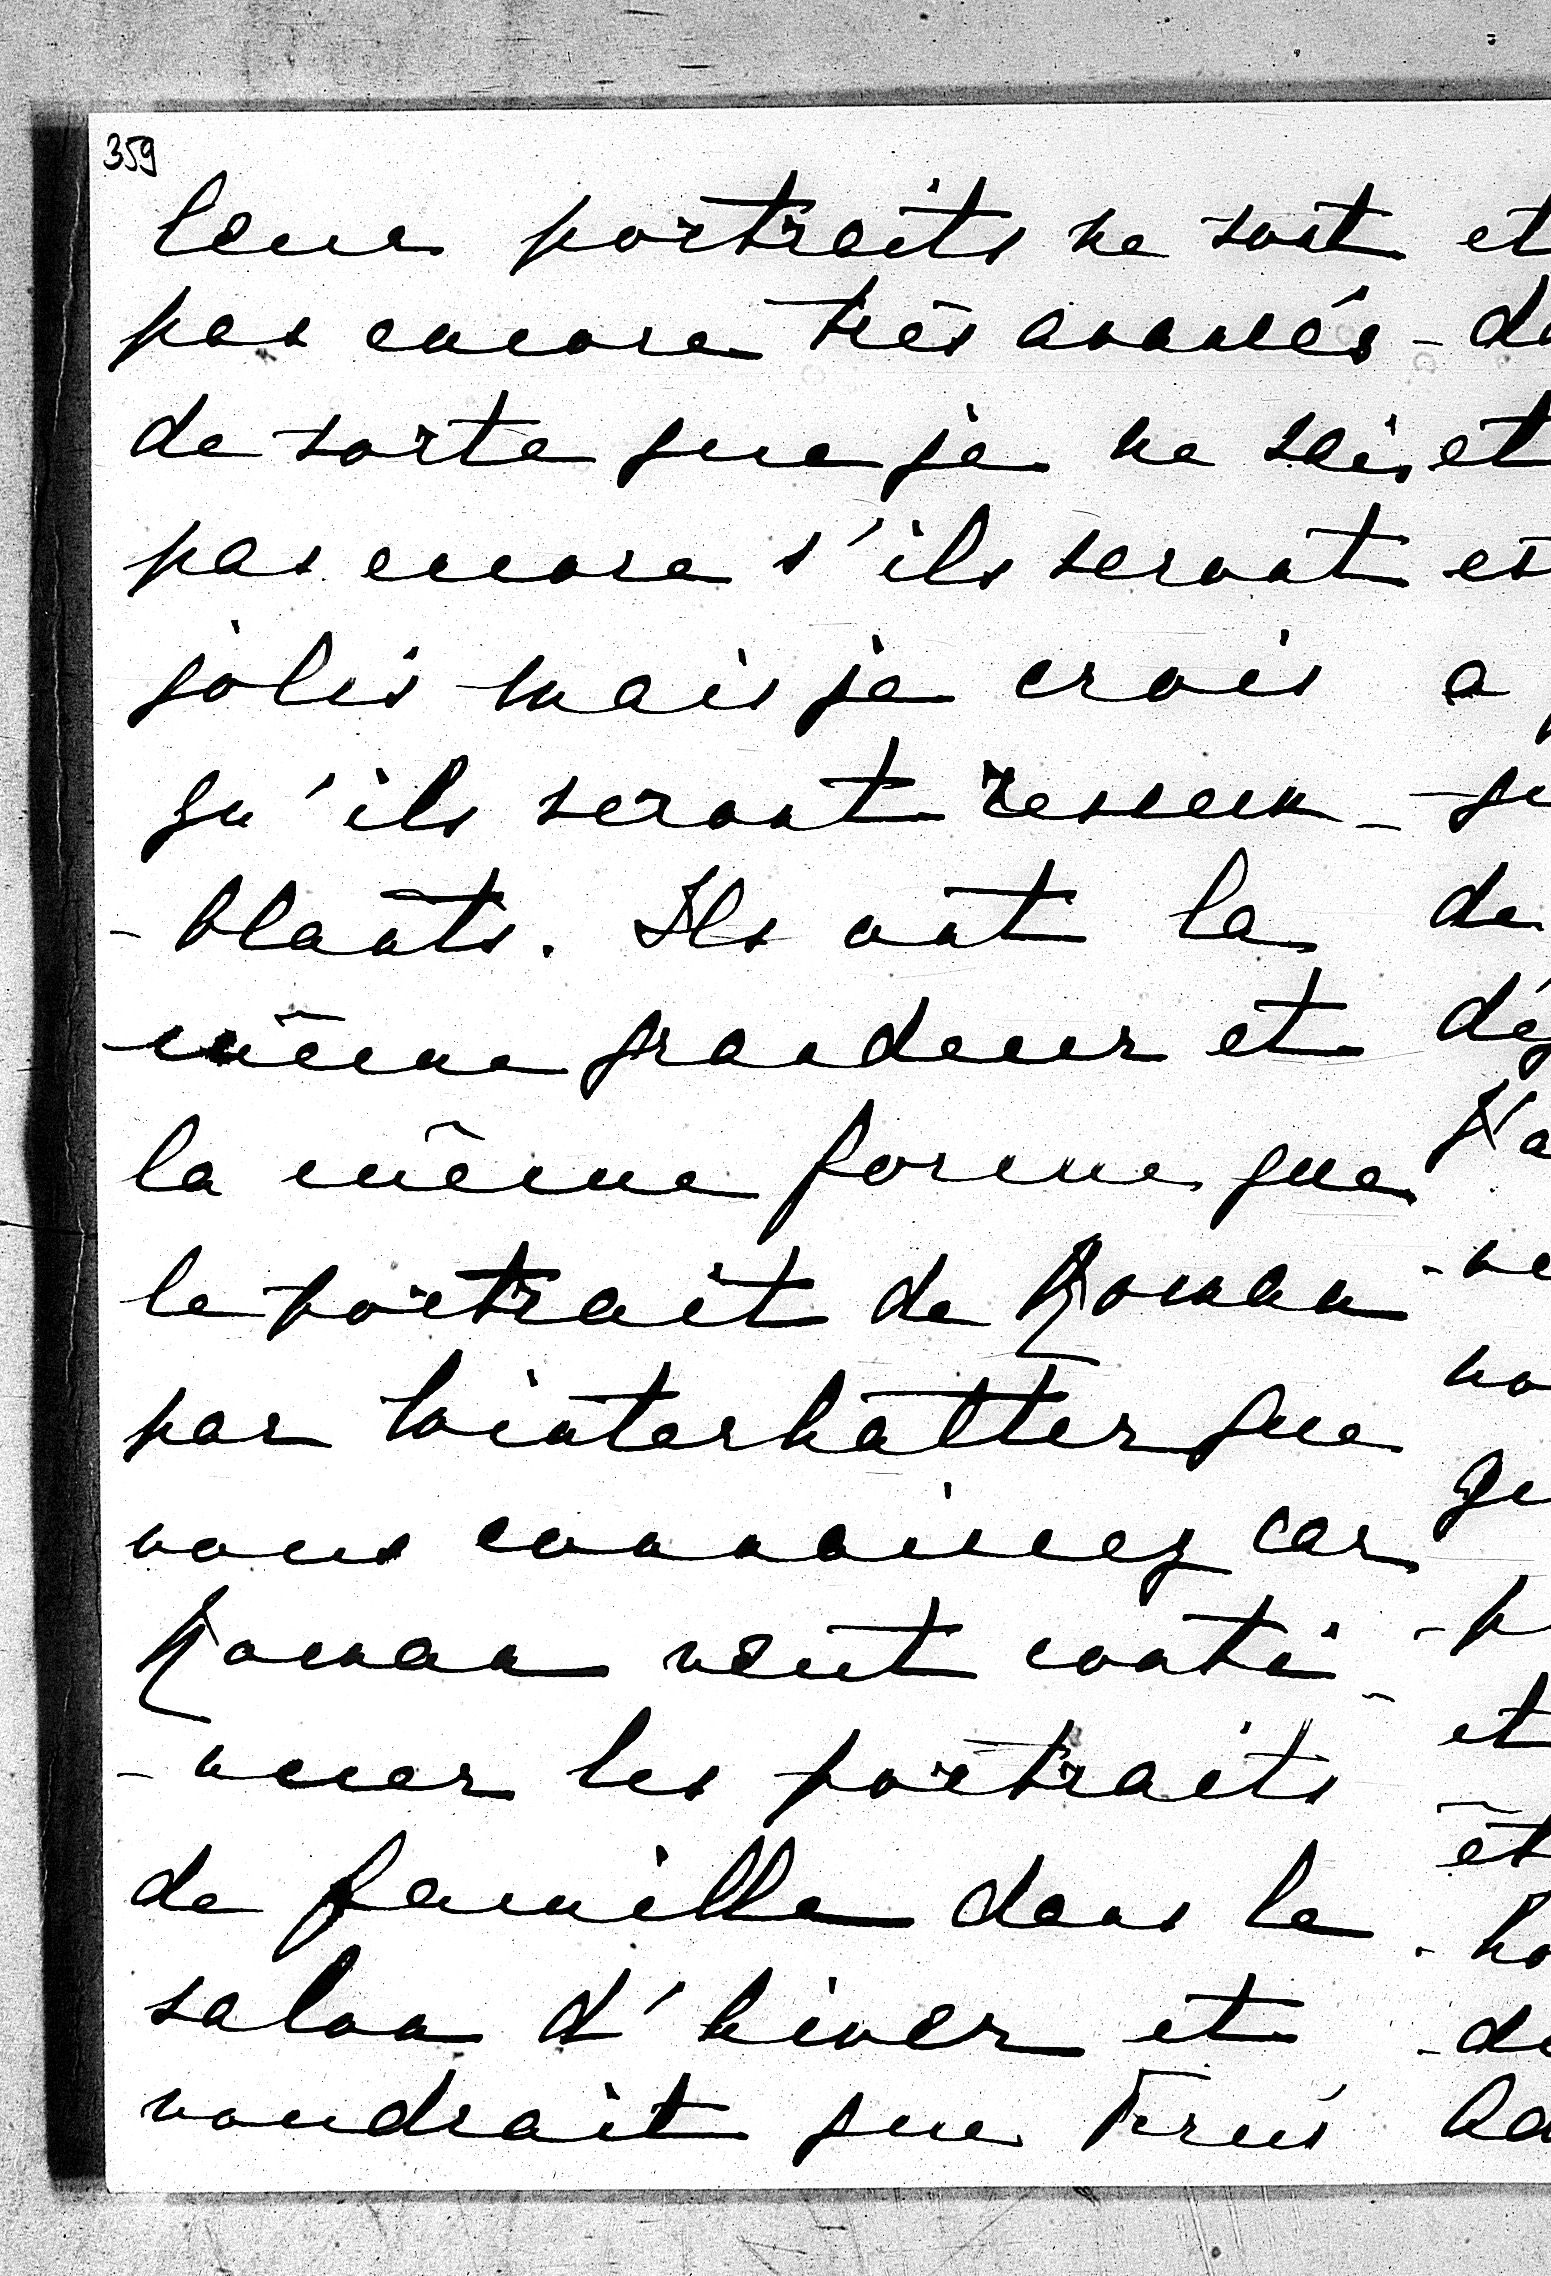 359
leur portraits ne sont et
pas encore très avancés - de
de sorte que je ne sais et
pas encore s'ils seront
jolis mais je crois a
qu'ils seront ressem-
-blants. Ils ont la de
même grandeur et
la même forme que
le portrait de Roman
par Winterhalter que
vous connaissez car
Roman veut conti-
-nuer les portraits et
de famille dans le
salon d'hiver et
voudrait que